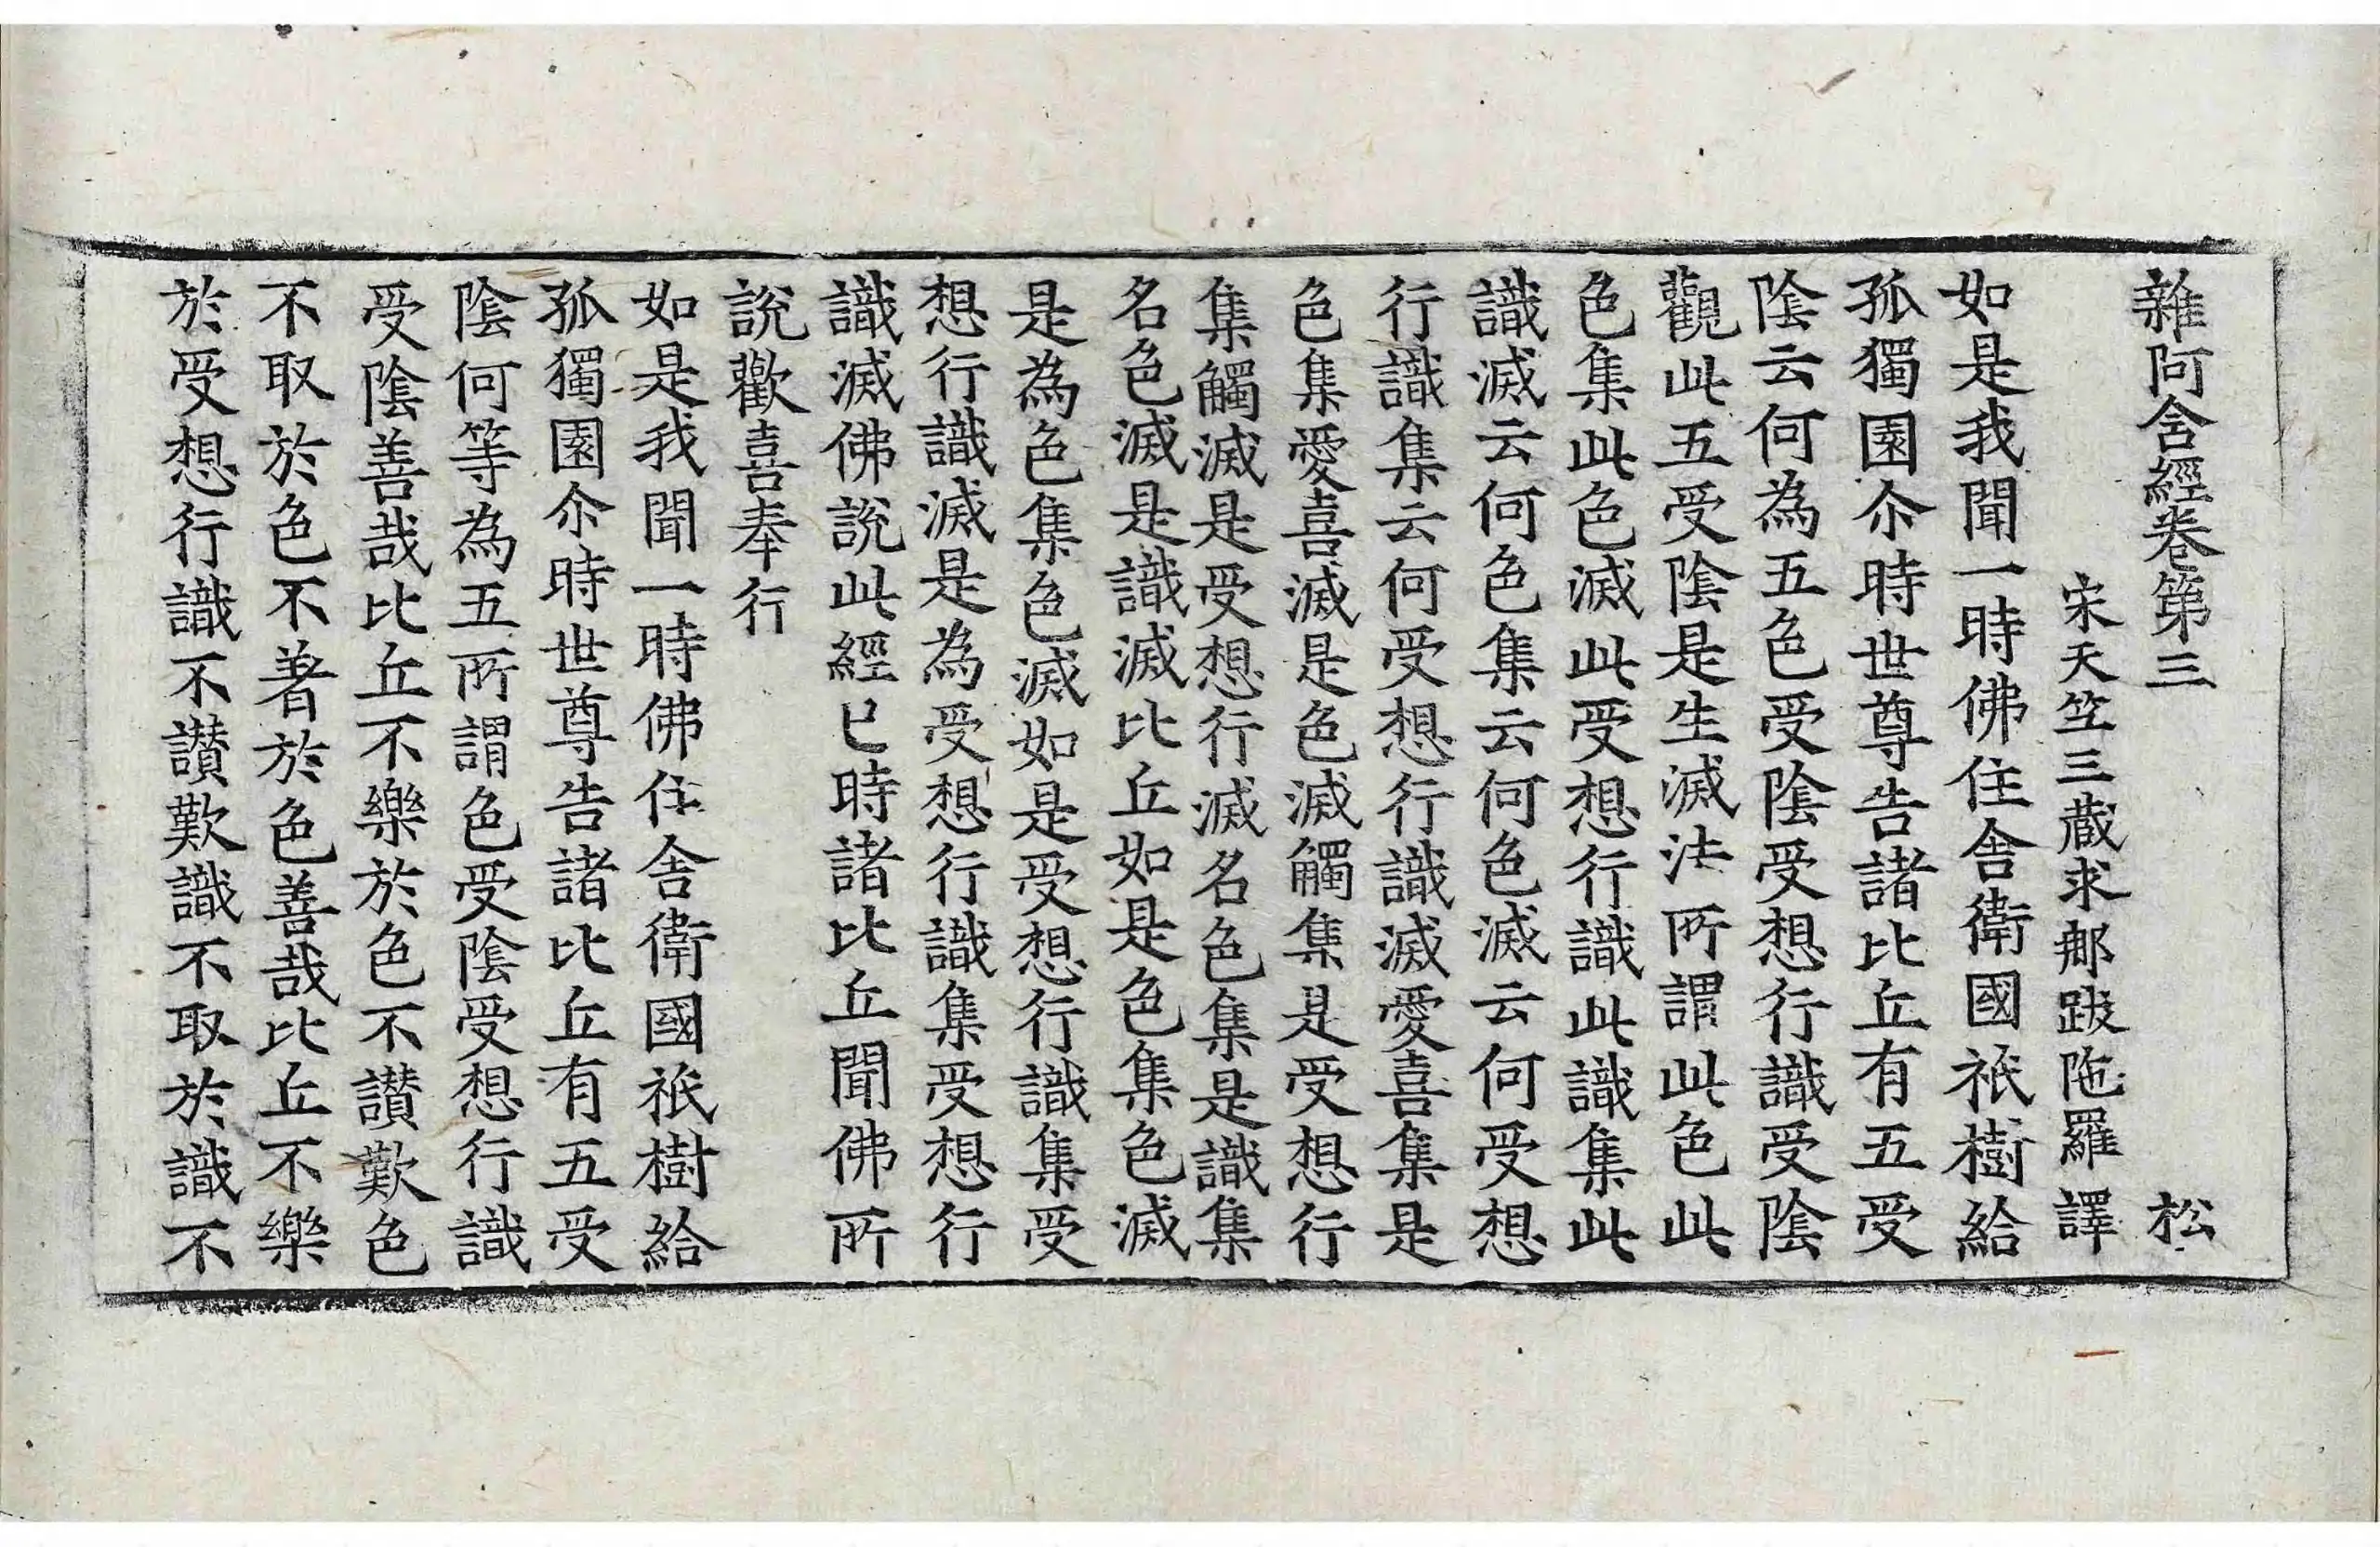 雜阿含經卷第三　松
宋天竺三藏求那跋陁羅譯
如是我聞一時佛住舍衛國祇樹給
孤獨園尒時世尊告諸比丘有五受
陰云何為五色受陰受想行識受陰
觀此五受陰是生滅法所謂此色此
色集此色滅此受想行識此識集此
識滅云何色集云何色滅云何受想
行識集云何受想行識滅愛喜集是
色集愛喜滅是色滅觸集是受想行
集觸滅是受想行滅名色集是識集
名色滅是識滅比丘如是色集色滅
是為色集色滅如是受想行識集受
想行識滅是為受想行識集受想行
識滅佛說此經已時諸比丘聞佛所
說歡喜奉行
如是我聞一時佛住舍衛國祇樹給
孤獨園尒時世尊告諸比丘有五受
陰何等為五所謂色受陰受想行識
受陰善哉比丘不樂於色不讃歎色
不取於色不著於色善哉比丘不樂
於受想行識不讃歎識不取於識不